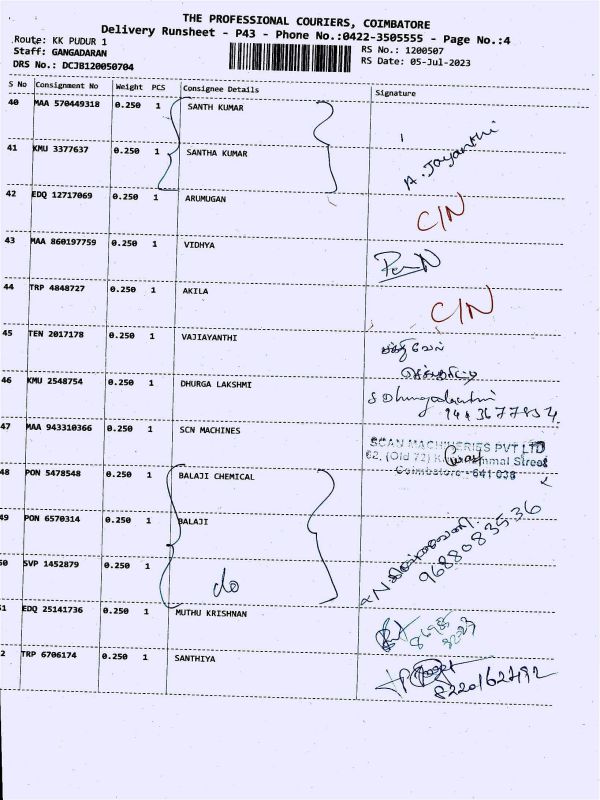 THE PROFESSIONAL COURIERS, COIMBATORE
Delivery Runsheet - P43 - Phone No.:0422-3505555 - Page No.:4
Route: KK PUDUR 1
RS No.: 1200507
Staff: GANGADARAN
RS Date: 05-Jul-2023
DRS No.: DCJB120050704
S No Consignment No Weight PCS Consignee Details Signature
40 MAA 570449318 0.250 1 SANTH KUMAR
41 KMU 3377637 0.250 1 SANTHA KUMAR A. Jayanthi
42 EDQ 12717069 0.250 1 ARUMUGAN C/N
43 MAA 860197759 0.250 1 VIDHYA
44 TRP 4848727 0.250 1 AKILA C/N
45 TEN 2017178 0.250 1 VAJIAYANTHI
46 KMU 2548754 0.250 1 DHURGA LAKSHMI
47 MAA 943310366 0.250 1 SCN MACHINES SCAN MACHINERIES PVT LTD
62, (Old 72) Street
Coimbatore - 641 038
48 PON 5478548 0.250 1 BALAJI CHEMICAL
49 PON 6570314 0.250 1 BALAJI
9688083536
50 SVP 1452879 0.250 1 do
51 EDQ 25141736 0.250 1 MUTHU KRISHNAN
2 TRP 6706174 0.250 1 SANTHIYA
8220162792